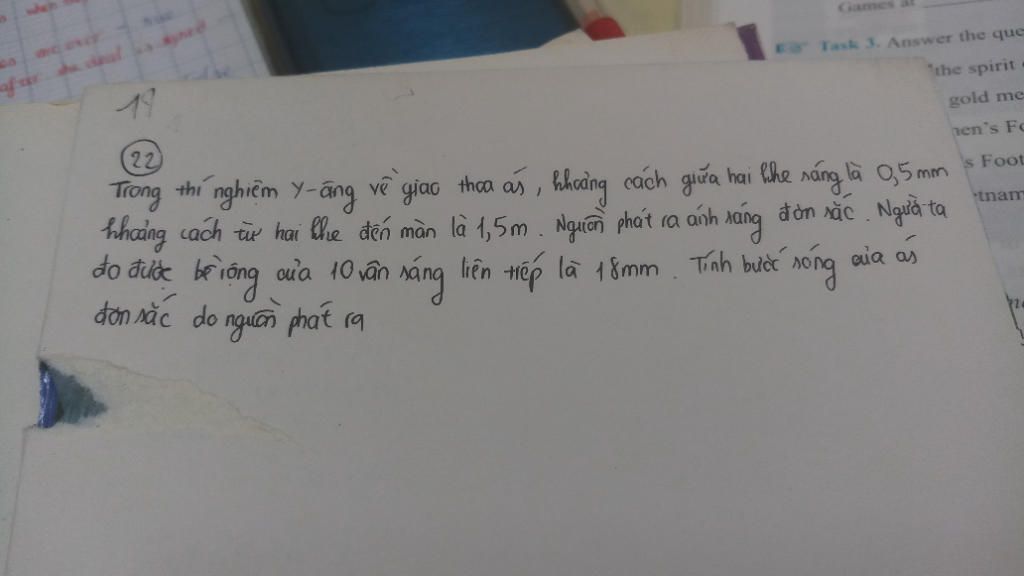 Games at
Task 3. Answer the que
the spirit
gold me
nen's Fo
s Foot
etnam
19
22
Trong thí nghiệm Y-âng về giao thoa ás, khoảng cách giữa hai khe sáng là 0,5mm
khoảng cách từ hai khe đến màn là 1,5m. Nguồn phát ra ánh sáng đơn sắc. Người ta
đo được bề rộng của 10 vân sáng liên tiếp là 18mm. Tính bước sóng của ás
đơn sắc do nguồn phát ra